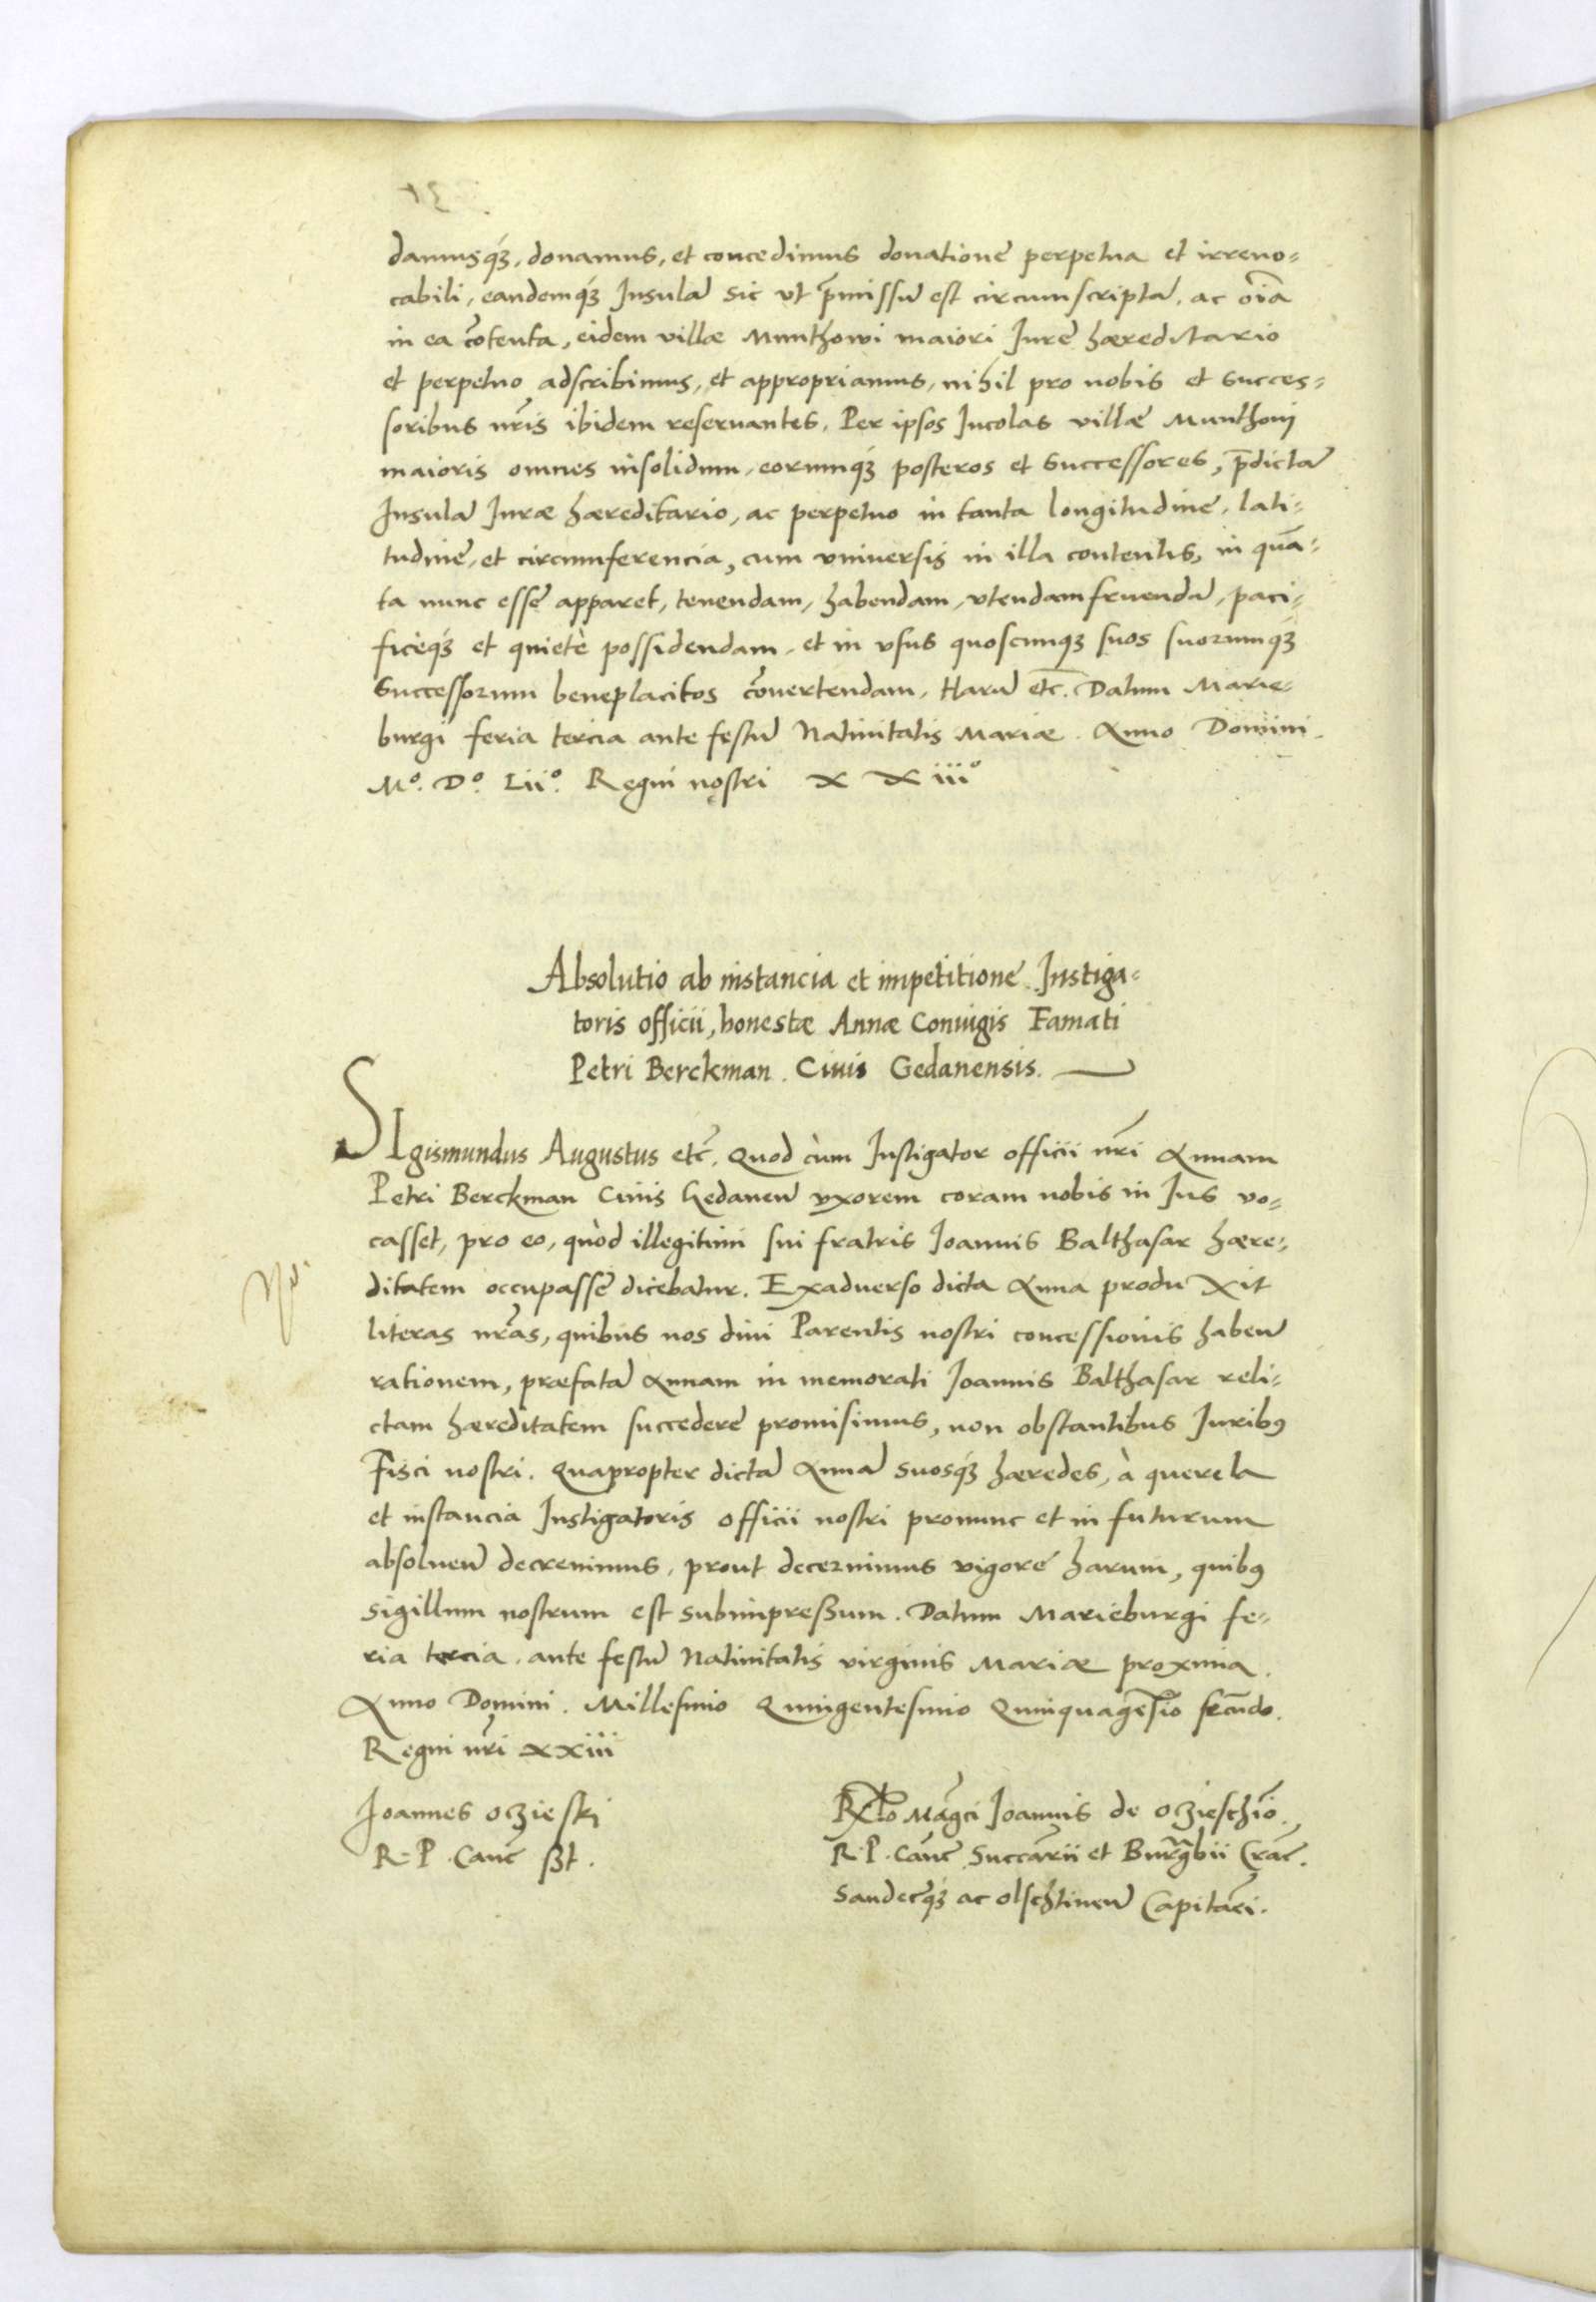 damusq́3, donamus, et concedimus donatione perpetua et irreuo=
cabili, eandemq́3 Insulã sic vt p̃missũ est circumscriptã, ac oĩa
in ea cõtenta, eidem villæ Munthowi maiori Iure hæreditario
et perpetuo adscribimus, et appropriamus, nihil pro nobis et succes=
soribus nr̃is ibidem reseruantes. Per ipsos Incolas villæ Munthoui
maioris omnes insolidum, eorumq́3 posteros et Successores, p̃dictã
Insulã Iuræ hæreditario, ac perpetuo in tanta longitudine, lati=
tudine, et circumferencia, cum vniuersis in illa contentis, in quã=
ta nunc esse apparet, tenendam, habendam, vtendam fruendã, paci=
ficeq́3 et quietè possidendam, et in vsus quoscunq3 suos suorumq́3
Successorum beneplacitos cõuertendam. Harũ etc̃. Datum Marie=
burgi feria tercia ante festũ Natiuitatis Mariæ. Anno Domini.
Mº. Dº. Liiº. Regni nostri XXiiiº
Absolutio ab instancia et impetitione Instiga=
toris officii, honestæ Annæ Coniugis Famati
Petri Berckman. Ciuis Gedanensis.
SIgismundus Augustus etc̃. Quod cùm Instigator officii nr̃i Annam
Petri Berckman Ciuis Gedaneñ vxorem coram nobis in Ius vo=
casset, pro eo, quòd illegitimi sui fratris Ioannis Balthasar hære=
ditatem occupasse dicebatur. Exaduerso dicta Anna produxit
literas nr̃as, quibus nos diui Parentis nostri concessionis habeñ
rationem, præfatã Annam in memorati Ioannis Balthasar reli=
ctam hæreditatem succedere promisimus, non obstantibus Iurib9
Fisci nostri. Quapropter dictã Annã suosq́3 hæredes, à querela
et instancia Instigatoris officii nostri pronunc et in futurum
absolueñ decreuimus, prout decernimus vigore harum, quib9
sigillum nostrum est subimpreßum. Datum Marieburgi fe=
ria tercia ante festũ Natiuitatis virginis Mariæ proxima.
Anno Domini. Millesimo Quingentesimo Quinquagesĩo secũdo.
Regni nr̃i xxiii
Ioannes oczieski
R. P. Canc̃ sst.
Rx̃lo Mãgci Ioannis de oczieschiõ.
R. P. Canc̃ Succãrii et Burg̃bii Crac̃.
Sandecq́3 ac olschtineñ Capitãei.